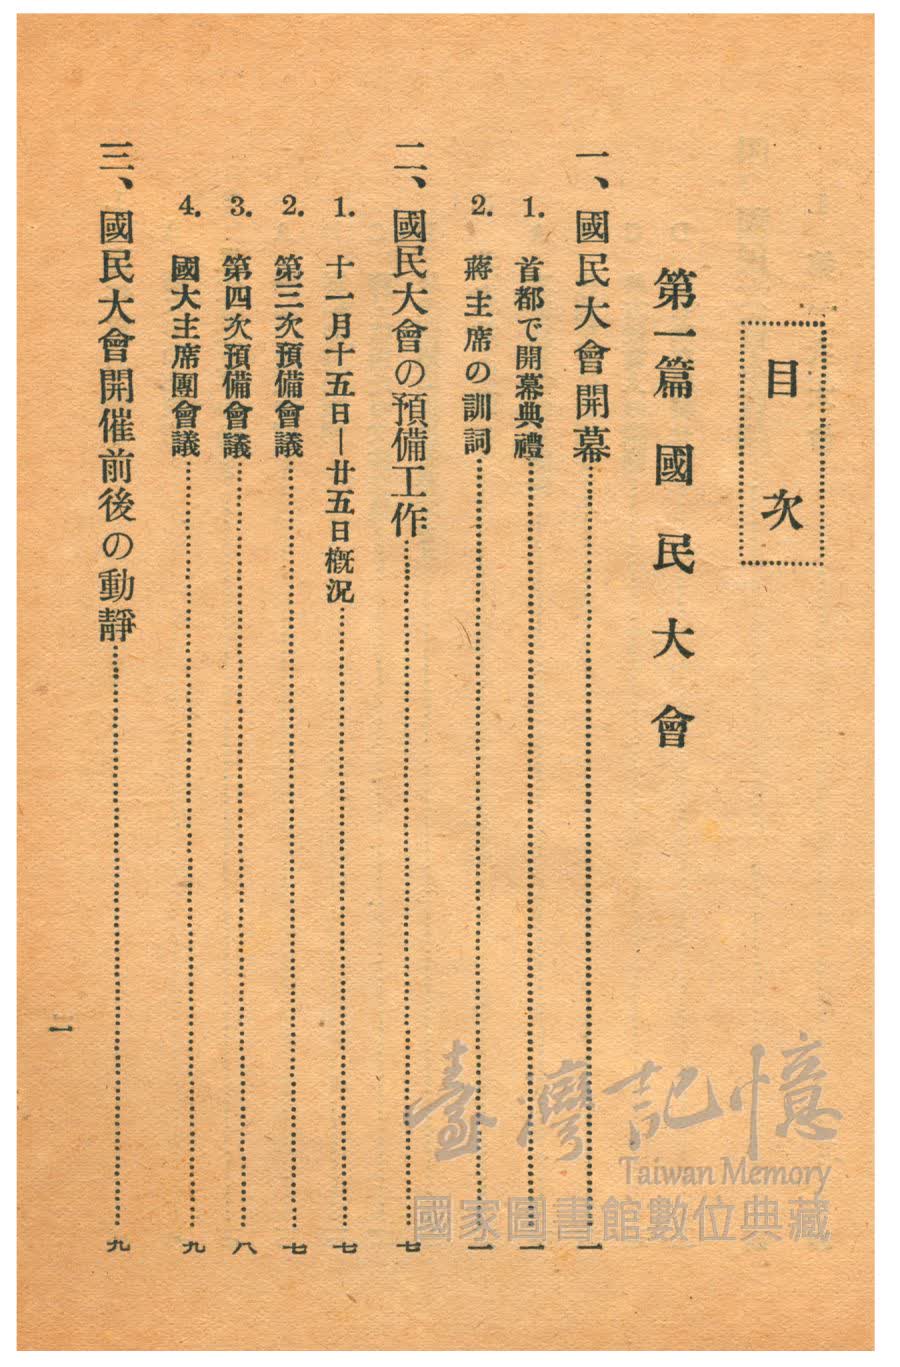 目次
第一篇 國民大會
一、國民大會開幕……一
1. 首都で開幕典禮……一
2. 蔣主席の訓詞……一
二、國民大會の預備工作……七
1. 十一月十五日—廿五日槪況……七
2. 第三次預備會議……七
3. 第四次預備會議……八
4. 國大主席團會議……九
三、國民大會開催前後の動靜……九
一
臺灣記憶
Taiwan Memory
國家圖書館數位典藏